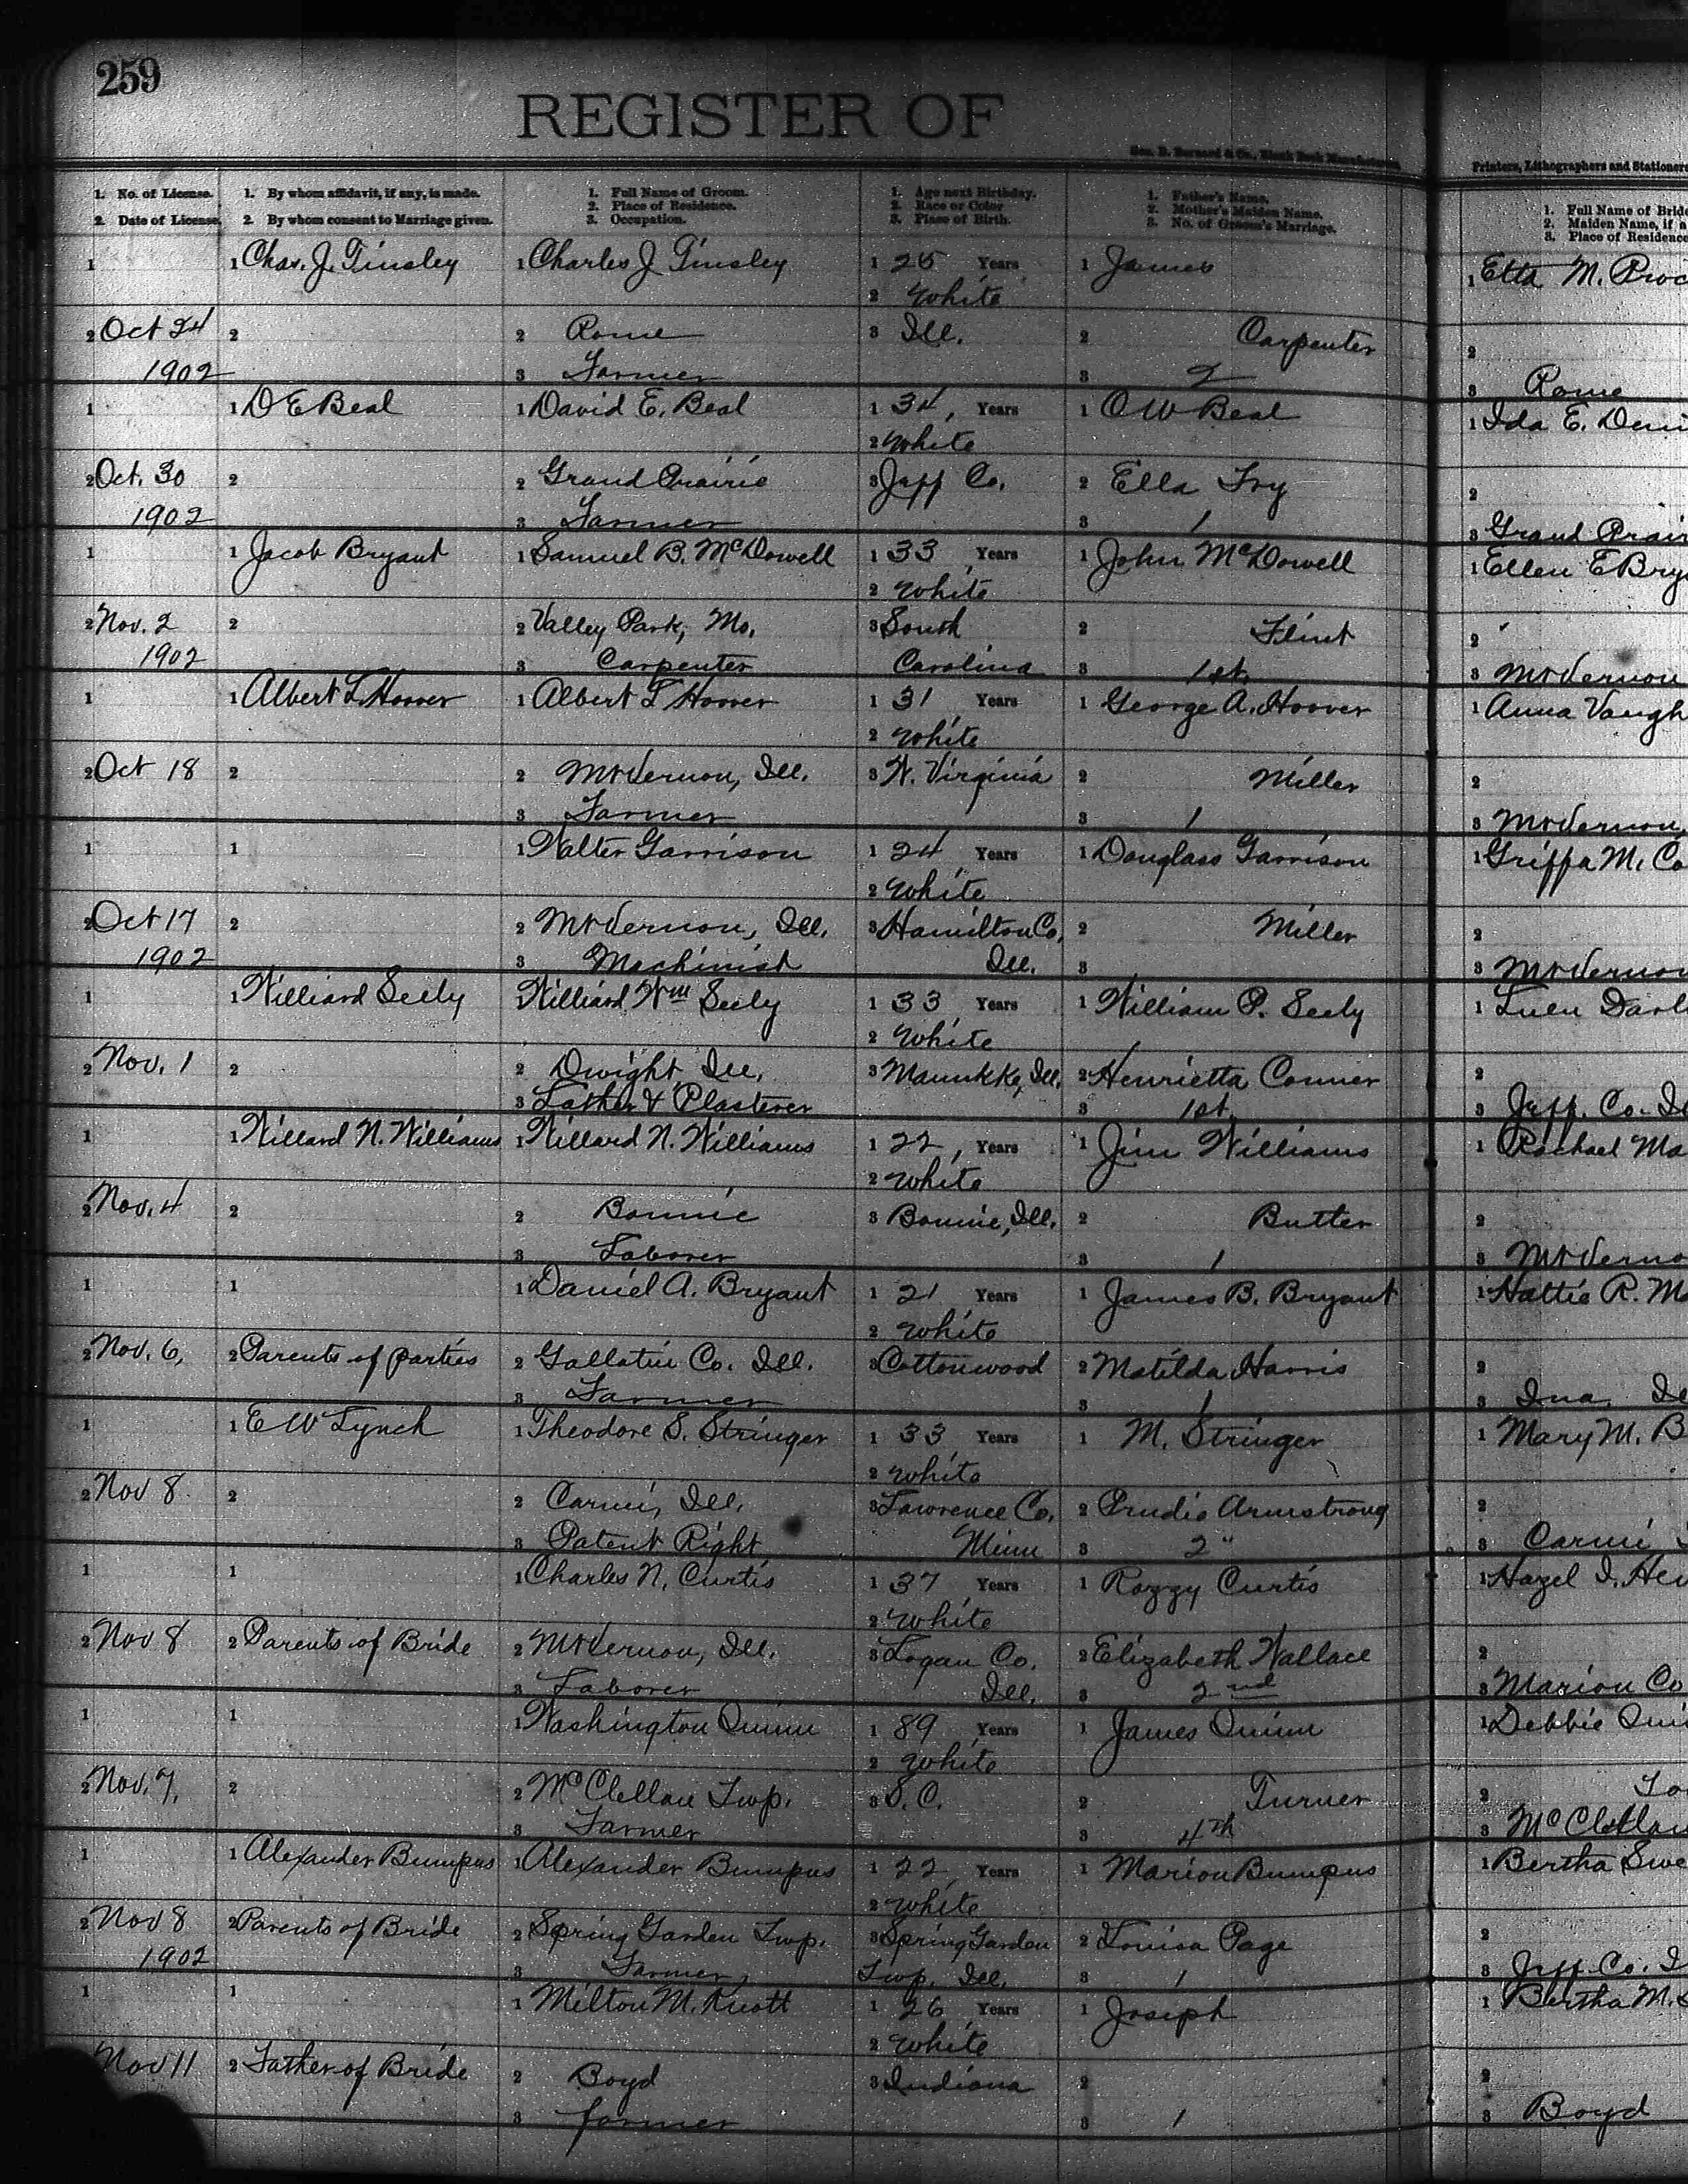 259
REGISTER OF
Geo. D. Barnard & Co., Blank Book Manufacturers,
Printers, Lithographers and Stationers
1. No. of License.
2. Date of License.
1. By whom affidavit, if any, is made.
2. By whom consent to Marriage given.
1. Full Name of Groom.
2. Place of Residence.
3. Occupation.
1. Age next Birthday.
2. Race or Color
3. Place of Birth.
1. Father's Name.
2. Mother's Maiden Name.
3. No. of Groom's Marriage.
1. Full Name of Bride
2. Maiden Name, if a
3. Place of Residence
1 1 Chas. J. Tinsley 1 Charles J Tinsley 1 25 Years 1 James 1 Etta M. Proc
2 White
2 Oct 24 2 2 Rome 3 Ill. 2 Carpenter 2
1902 3 Farmer 3 2 3 Rome
1 1 D E Beal 1 David E. Beal 1 34, Years 1 O W Beal 1 Ida E. Deni
2 White
2 Oct. 30 2 2 Grand Prairie 3 Jeff Co. 2 Ella Fry 2
1902 3 Farmer 3 1 3 Grand Prair
1 1 Jacob Bryant 1 Samuel B. McDowell 1 33 Years 1 John McDowell 1 Ellen E Brya
2 White
2 Nov. 2 2 2 Valley Park, Mo. 3 South 2 Flint 2
1902 3 Carpenter Carolina 3 1st. 3 Mt Vernon
1 1 Albert L Hoover 1 Albert L Hoover 1 31 Years 1 George A. Hoover 1 Anna Vaugh
2 White
2 Oct 18 2 2 Mt Vernon, Ill. 3 W. Virginia 2 Miller 2
3 Farmer 3 1 3 Mt Vernon,
1 1 1 Walter Garrison 1 24 Years 1 Douglass Garrison 1 Griffa M. Co
2 White
2 Oct 17 2 2 Mt Vernon, Ill. 3 Hamilton Co. 2 Miller 2
1902 3 Machinist Ill. 3 3 Mt Vernon
1 1 Williard Seely 1 Williard Wm Seely 1 33 Years 1 William P. Seely 1 Lueu Darl
2 White
2 Nov. 1 2 2 Dwight Ill. 3 Maunkke, Ill. 2 Henrietta Conner 2
3 Lather & Plasterer 3 1st. 3 Jeff. Co. Il
1 1 Willard N. Williams 1 Willard N. Williams 1 22, Years 1 Jim Williams 1 Rachael Ma
2 White
2 Nov. 4 2 2 Bonnie 3 Bonnie, Ill. 2 Butler 2
3 Laborer 3 1 3 Mt Verno
1 1 1 Daniel A. Bryant 1 21 Years 1 James B. Bryant 1 Hattie R. Ma
2 White
2 Nov. 6, 2 Parents of parties 2 Gallatin Co. Ill. 3 Cottonwood 2 Matilda Harris 2
3 Farmer 3 1 3 Ina, Il
1 1 E W Lynch 1 Theodore S. Stringer 1 33 Years 1 M. Stringer 1 Mary M. B
2 White
2 Nov 8 2 2 Carmi, Ill. 3 Lawrence Co. 2 Prudie Armstrong 2
3 Patent Right Minn 3 2" 3 Carmi
1 1 1 Charles N. Curtis 1 37 Years 1 Rozzy Curtis 1 Hazel I. Hen
2 White
2 Nov 8 2 Parents of Bride 2 Mt Vernon, Ill. 3 Logan Co. 2 Elizabeth Wallace 2
3 Laborer Ill. 3 2nd 3 Marion Co
1 1 1 Washington Quinn 1 89 Years 1 James Quinn 1 Debbie Quin
2 White
2 Nov. 7. 2 2 McClellan Twp. 3 S. C. 2 Turner 2
3 Farmer 3 4th 3 McClellan
1 1 Alexander Bumpus 1 Alexander Bumpus 1 22 Years 1 Marion Bumpus 1 Bertha Swe
2 White
2 Nov 8 2 Parents of Bride 2 Spring Garden Twp. 3 Spring Garden 2 Louisa Page 2
1902 3 Farmer Twp. Ill. 3 1 3 Jeff. Co. I
1 1 1 Milton M. Knott 1 26 Years 1 Joseph 1 Bertha M.
2 White
Nov 11 2 Father of Bride 2 Boyd 3 Indiana 2 2
3 farmer 3 1 3 Boyd